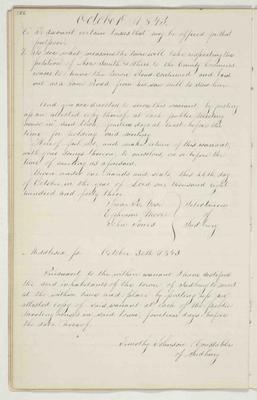 October 1843.
6. To act on certain taxes that may be offered for that
purpose.
7. To see what measures the town will take respecting the
petition of to the County Commissioners
to have the town road and laid
out as a town road from his own mill to
And you are directed to serve this warrant, by posting
up an attested copy thereof, at each public meeting
house in said town, fourteen days at least before the
time for holding said meeting.
Hereof fail not, and make return of this warrant,
with your doings thereon, to ourselves, on or before the
time of meeting as aforesaid.
Given under our hands and seals this
of October in the year of our Lord one thousand eight
hundred and forty three.
Selectmen
Ephraim Moore of
John Sudbury
Middlesex ss. October 30th 1843
Pursuant to the within warrant I have notified
the said inhabitants of the town of Sudbury to meet
at the within time and place by putting up an
attested copy of said warrant at each of the public
meeting houses in said town fourteen days before
the date hereof.
Timothy Johnson Constable
of Sudbury